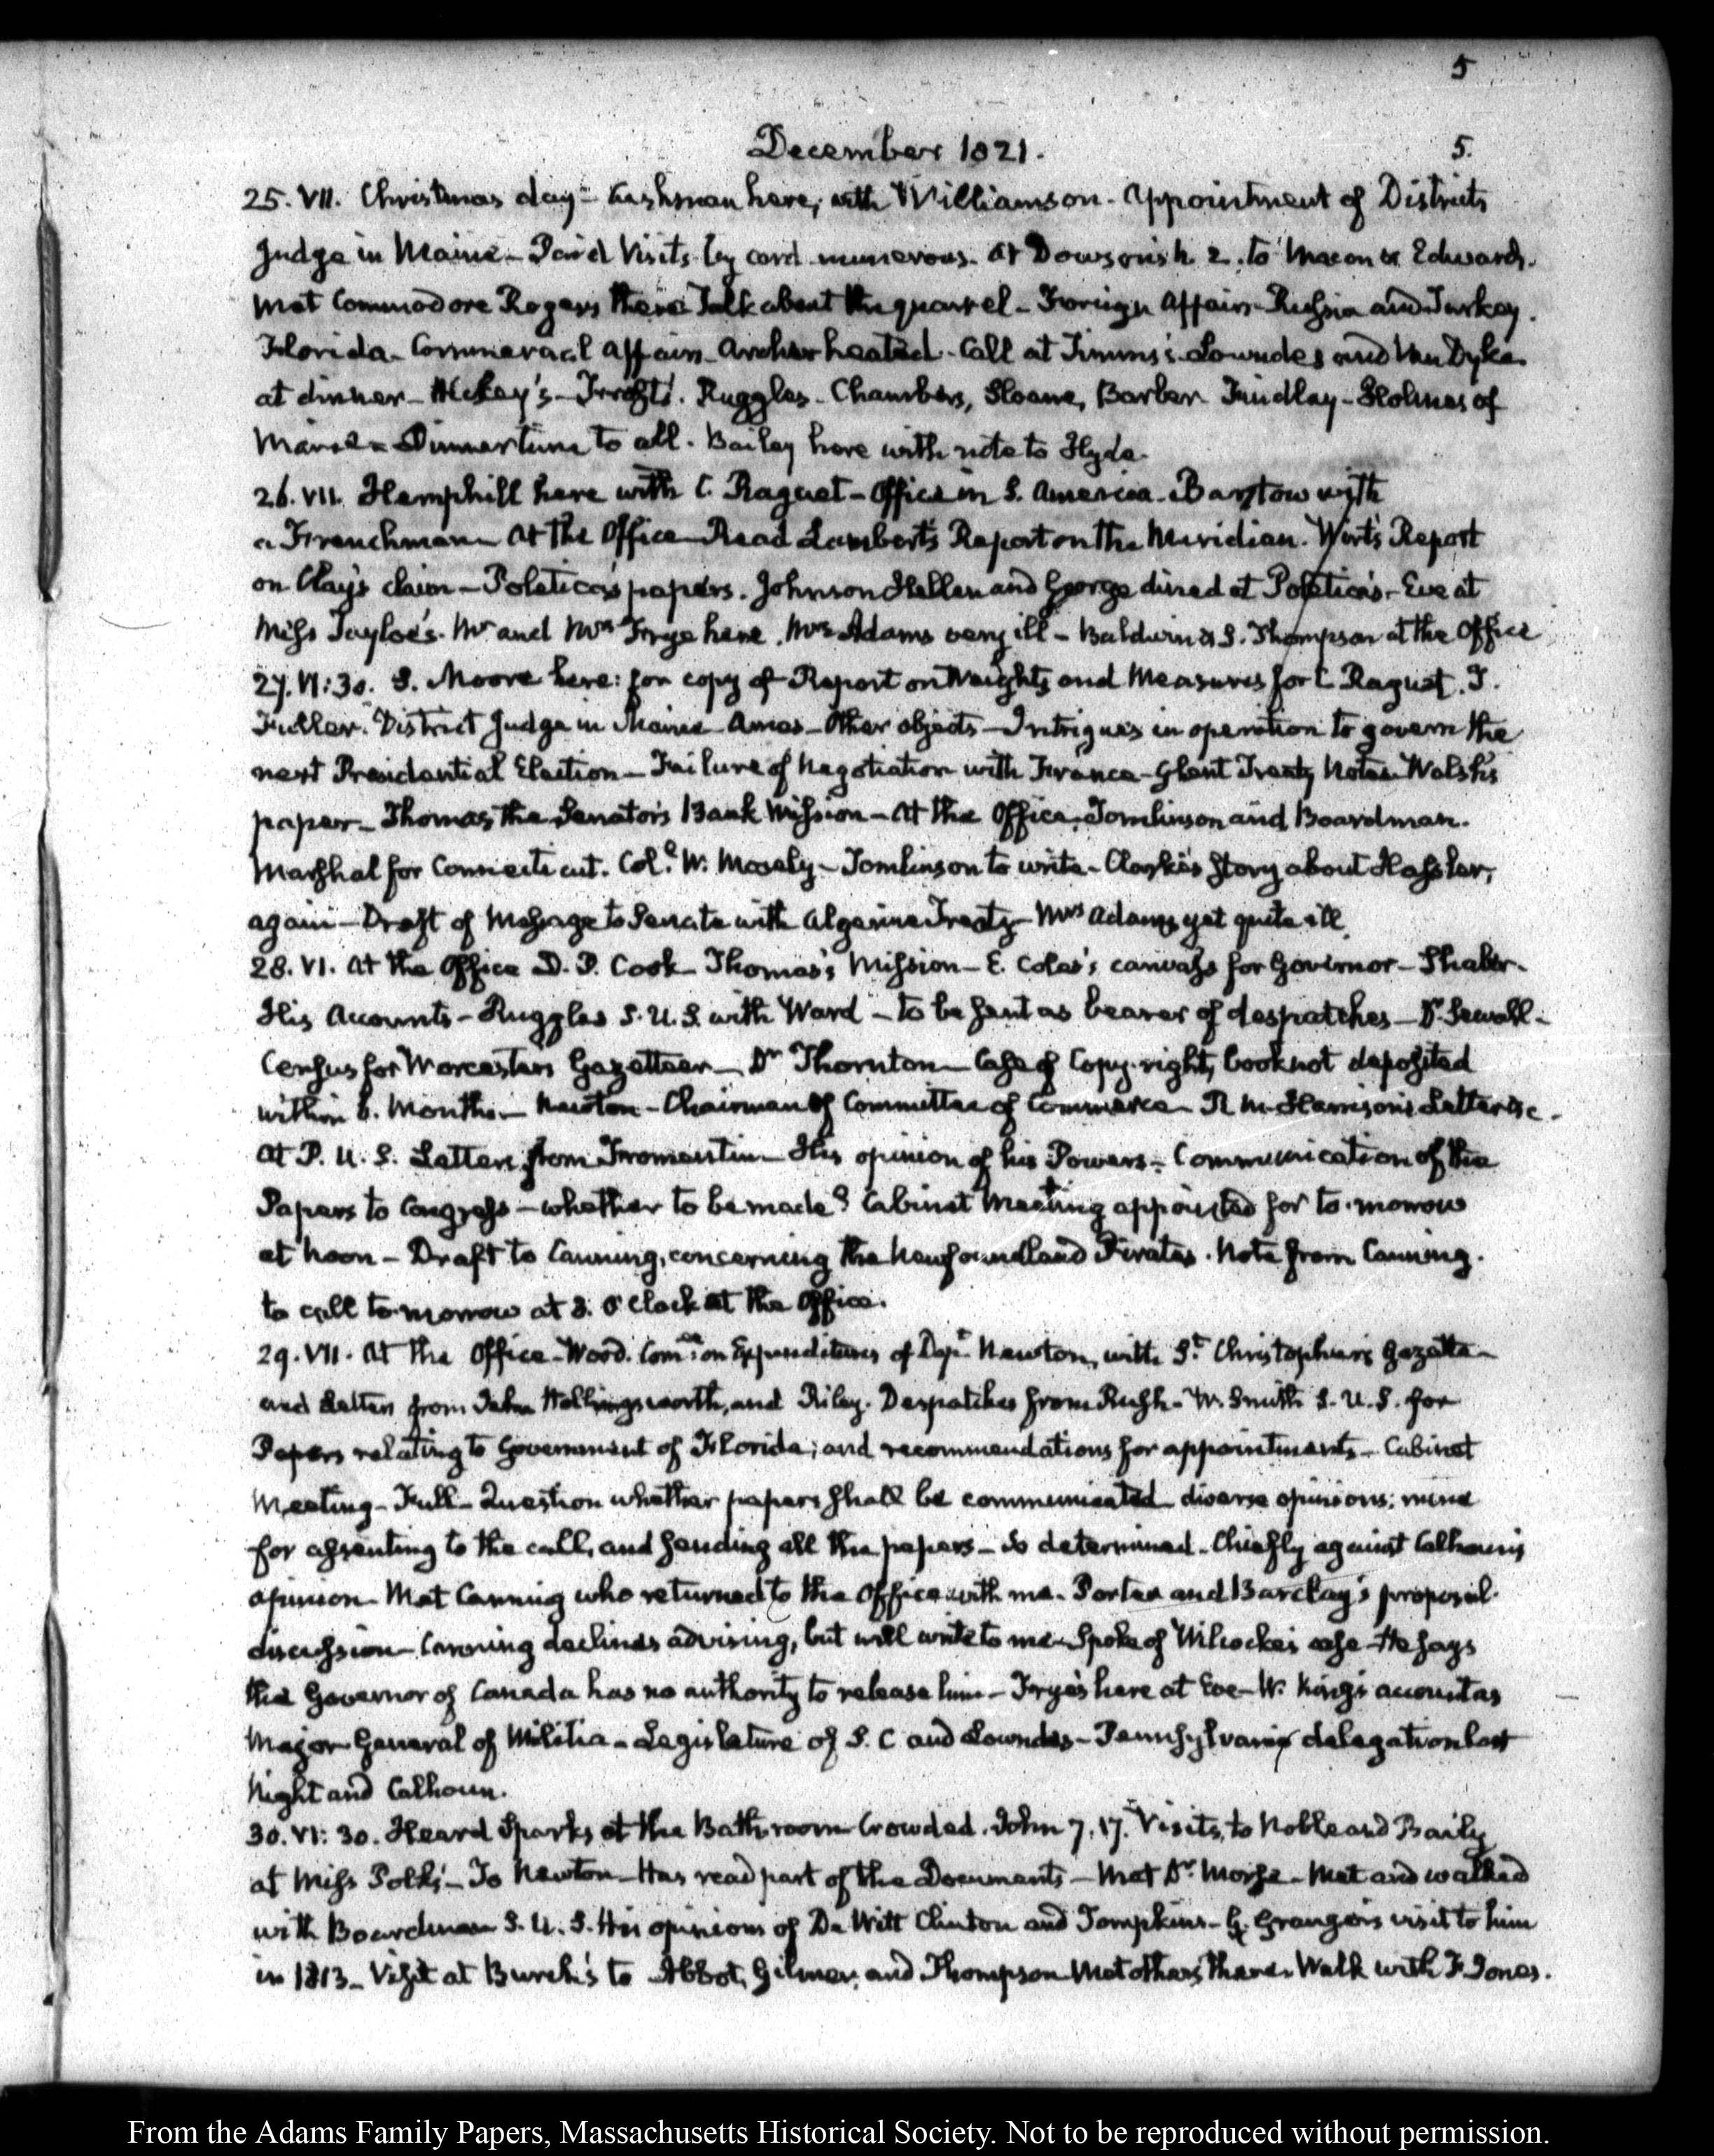 5
December 1821.
5.
25. VII. Christmas day - Cushman here, with Williamson - Appointment of District
Judge in Maine - Paid Visits by card numerous. At Dowson's N. 2. to Macon & Edwards.
Met Commodore Rogers there Talk about the quarrel - Foreign Affairs - Russia and Turkey.
Florida - Commercial Affairs - Archer heated - Call at Timms's - Lowndes and Van Dyke
at dinner - Ruggles - Chambers, Sloane, Barber Findlay - Holmes of
Maine - Dinner time to all. Bailey here with note to Hyde.
26. VII. Hemphill here with C. Raguet - Office in S. America - Barstow with
a Frenchman - At the Office - Read Lambert's Report on the Meridian. Wirt's Report
on Clay's claim - Poletica's papers. Johnson Hellen and George dined at Poletica's - Eve at
Miss Tayloe's. Mr and Mrs Frye here. Mrs Adams very ill - Baldwin & S. Thompson at the Office
27. VI:30. S. Moore here: for copy of Report on Weights and Measures for C. Raguet. T.
Fuller. District Judge in Maine - Ames - Other objects - Intrigues in operation to govern the
next Presidential Election - Failure of Negotiation with France - Ghent Treaty Notes - Walsh's
paper - Thomas, the Senator's Bank Mission - At the Office, Tomlinson and Boardman.
Marshal for Connecticut. Col. W. Mosely - Tomlinson to write - Clarke's story about Hassler,
again - Draft of Message to Senate with Algerine Treaty - Mrs Adams yet quite ill.
28. VI. At the Office D. P. Cook - Thomas's Mission - E. Coles's canvass for Governor - Shaler.
His Accounts - Ruggles S.U.S. with Ward - to be sent as bearer of despatches - Dr Sewall -
Census for Worcester's Gazetteer - Dr Thornton - Case of Copy-right, book not deposited
within 6. Months - Newton - Chairman of Committee of Commerce - R M. Harrison's Letter &c.
At P. U. S. Letter from Fromentin - His opinion of his Powers - Communication of the
Papers to Congress - whether to be made? Cabinet Meeting appointed for to-morrow
at Noon - Draft to Canning, concerning the Newfoundland Pirates. Note from Canning.
to call to-morrow at 3. O'Clock at the Office.
29. VII. At the Office - Wood. Comee on Expenditures of Dept Newton, with St Christopher's Gazette -
and Letters from John Hollingsworth, and Riley. Despatches from Rush - W. Smith S.U.S. for
Papers relating to Government of Florida; and recommendations for appointments - Cabinet
Meeting - Full - Question whether papers shall be communicated - diverse opinions; mine
for assenting to the call, and sending all the papers - so determined - Chiefly against Calhoun's
opinion - Met Canning who returned to the Office with me. Porter and Barclay's proposal -
discussion - Canning declines advising, but will write to me - Spoke of Wilcocke's case - He says
the Governor of Canada has no authority to release him - Frye's here at Eve - W. King's account as
Major General of Militia - Legislature of S. C and Lowndes - Pennsylvania delegation last
Night and Calhoun.
30. VI: 30. Heard Sparks at the Bath room - Crowded. John 7. 17. Visits, to Noble and Baily
at Miss Polk's - To Newton - Has read part of the Documents - Met Dr Morse - Met and walked
with Boardman S.U.S. His opinions of De Witt Clinton and Tompkins - G. Granger's visit to him
in 1813 - Visit at Burch's to Abbot, Gilmer, and Thompson - Met others there - Walk with F. Jones.
From the Adams Family Papers, Massachusetts Historical Society. Not to be reproduced without permission.